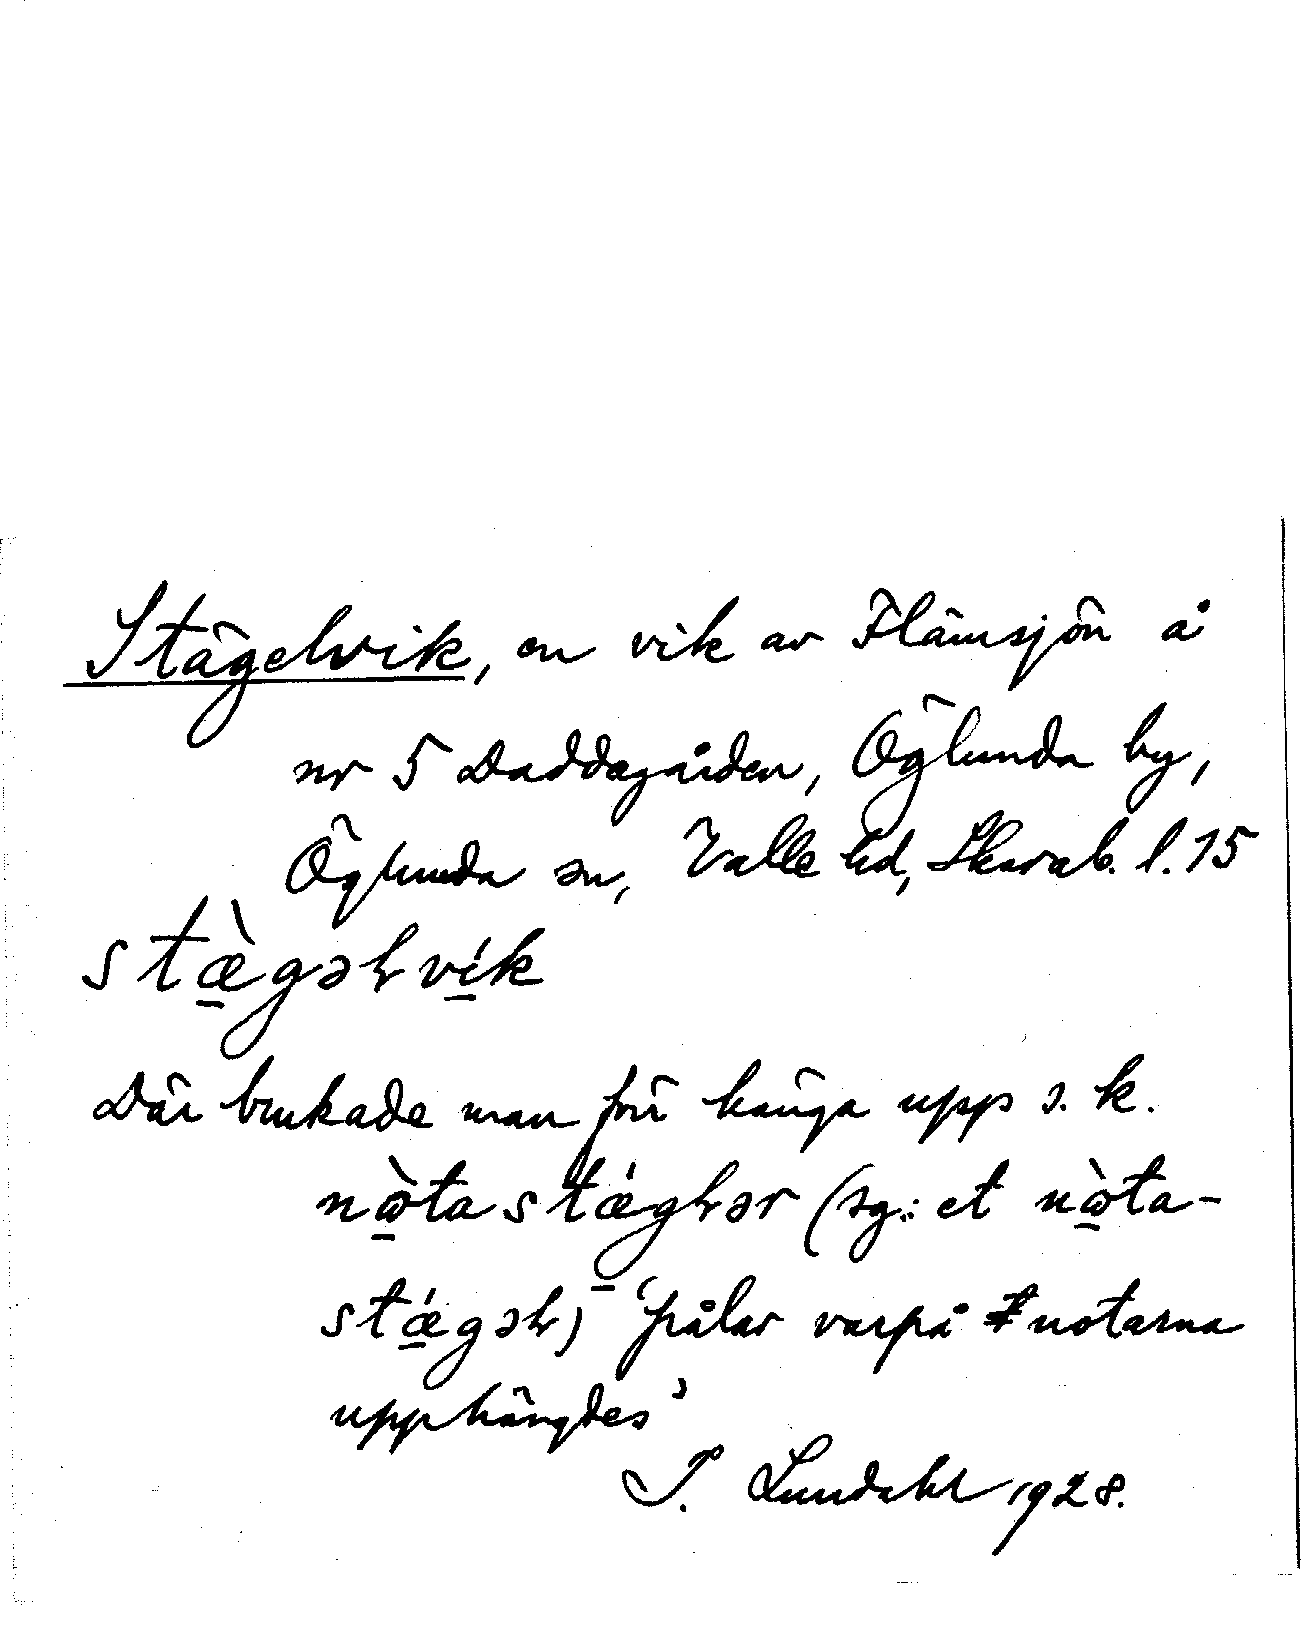 Stägelvik, en vik av Flämsjön å
nr 5 Daddegården, Öglunda by,
Öglunda sn, Valle hd, Skarab. l. 15
stæ̀gəɫvík
Där brukade man förr hänga upp s. k.
nωtastǽgɫər (sg.: et nωta-
stǽgəɫ) 'pålar varpå notarna
upphängdes'
I. Lundahl 1928.